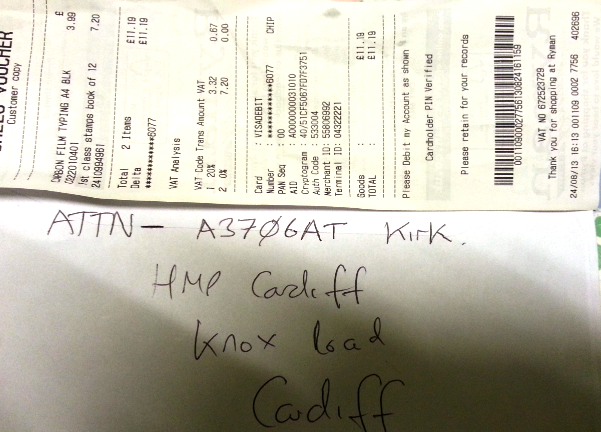 VOUCHER
Customer copy
CARBON FILM TYPING A4 BLK
022010401 3.99
1st class stamps book of 12
2410994961 7.20
Total 2 Items £11.19
Delta £11.19
************6077
VAT Analysis
VAT Code Trans Amount VAT
1 20% 3.32 0.67
2 0% 7.20 0.00
Card : VISADEBIT
Number : ************6077 CHIP
PAN Seq : 00
AID : A0000000031010
Cryptogram : 40/51CF5067FD7F3751
Auth Code : 533004
Merchant ID: 55806992
Terminal ID: 04322221
Goods : £11.19
TOTAL : £11.19
Please Debit my Account as shown
Cardholder PIN Verified
Please retain for your records
VAT NO 672523729
Thank you for shopping at Ryman
24/08/13 16:13 001109 0002 7756 402696
ATTN - A3706AT Kirk.
HMP Cardiff
Knox Road
Cardiff